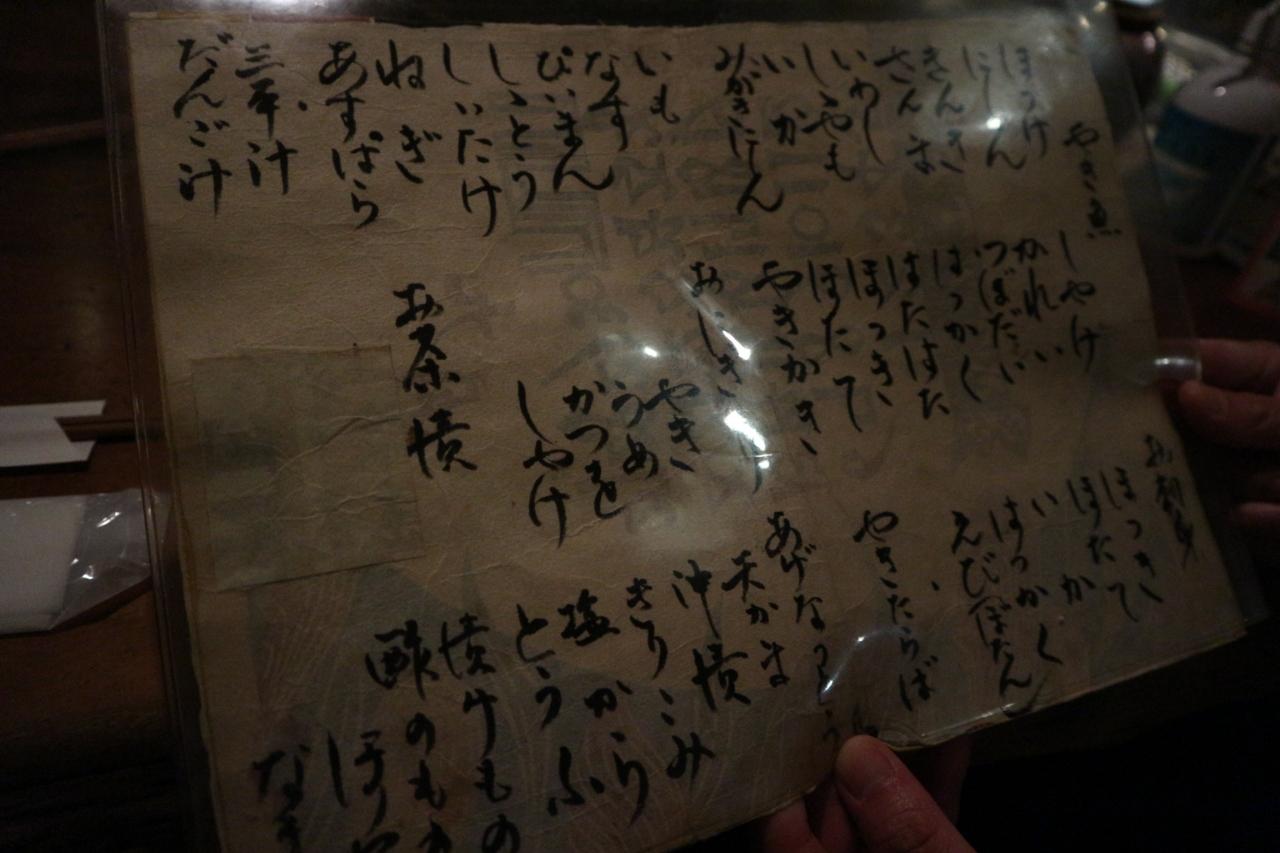 やき魚
ほっけ
にしん
きんき
さんま
いわし
ししゃも
いか
みがきにしん
いも
なす
ぴいまん
ししとう
しいたけ
ねぎ
あすぱら
三平汁
だんご汁
しゃけ
かれい
つぼだい
はっかく
はたはた
ほっき
ほたて
やきかき
やき
うめ
かつを
しゃけ
お茶漬
お刺身
ほっき
ほたて
いか
はっかく
えびぼたん
やきたらば
天かま
沖漬
きりこみ
塩から
とうふ
漬けもの
酢のもの
ほや